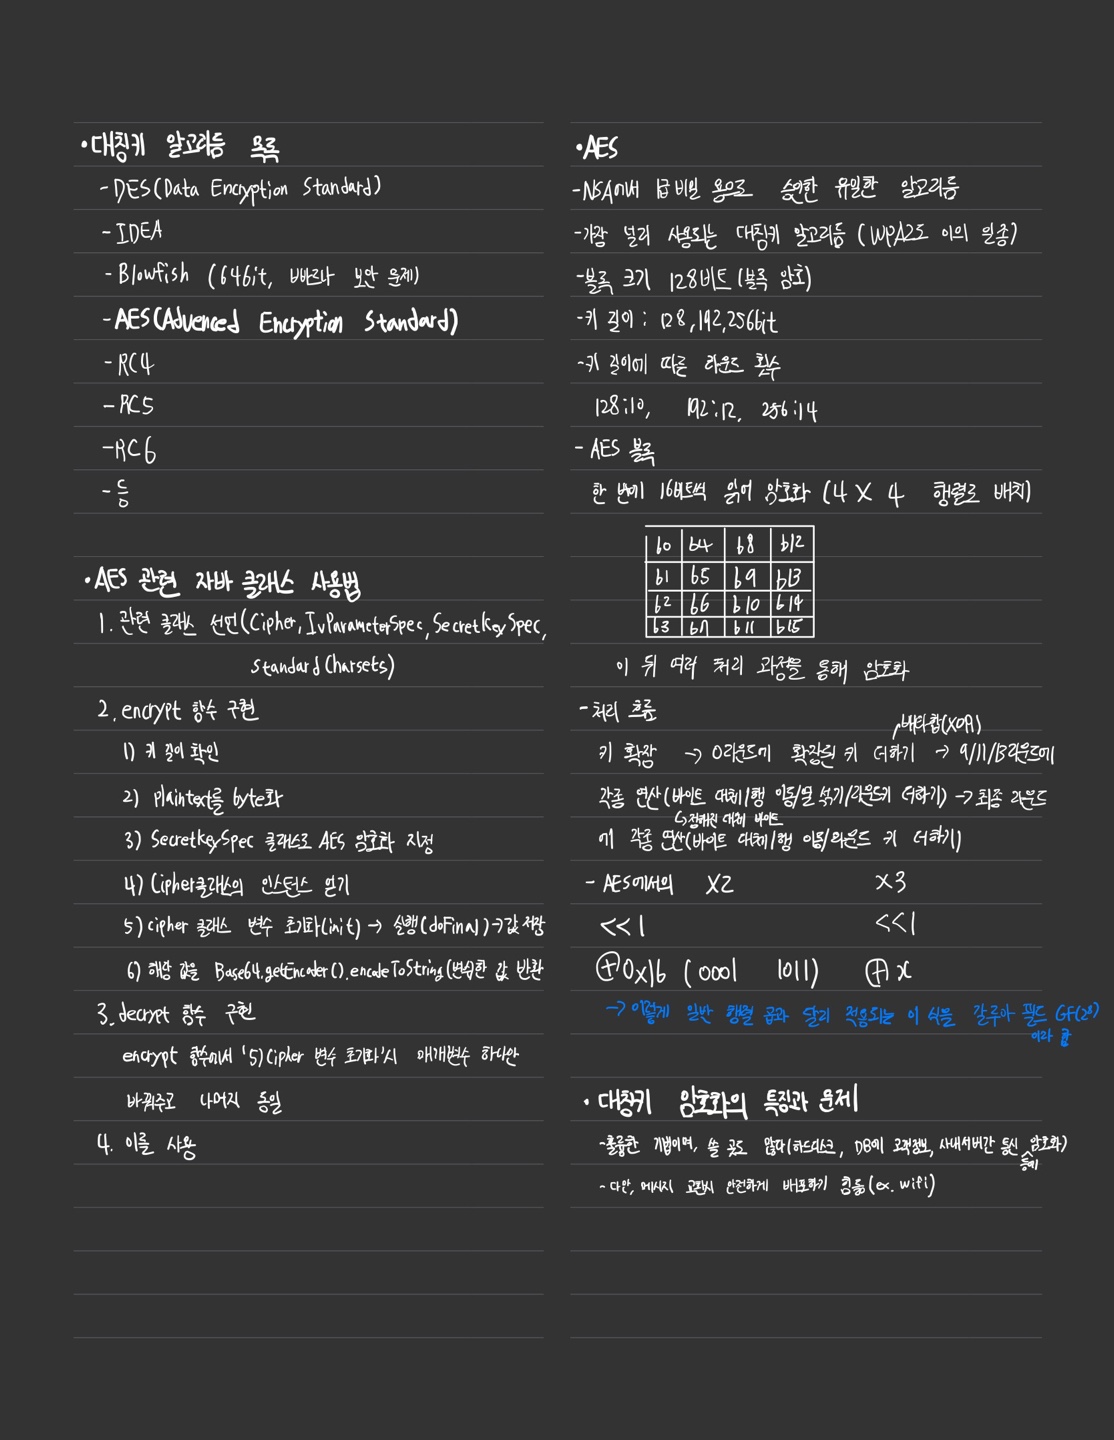 •대칭키 알고리듬 목록
-DES(Data Encryption Standard)
-IDEA
-Blowfish (64bit, 빠르나 보안 문제)
-AES(Advenced Encryption Standard)
-RC4
-RC5
-RC6
-등
•AES 관련 자바 클래스 사용법
1. 관련 클래스 선언(Cipher, IvParameterSpec, SecretKeySpec,
StandardCharsets)
2. encrypt 함수 구현
1) 키 길이 확인
2) plaintext를 byte화
3) SecretKeySpec 클래스로 AES 암호화 지정
4) Cipher클래스의 인스턴스 얻기
5) cipher 클래스 변수 초기화(init) → 실행(doFinal)→값 저장
6) 해당 값을 Base64.getEncoder().encodeToString(변수)한 값 반환
3. decrypt 함수 구현
encrypt 함수에서 '5) Cipher 변수 초기화'시 매개변수 하나만
바꿔주고 나머지 동일
4. 이를 사용
•AES
-NSA에서 1급 비밀 용으로 승인한 유일한 알고리듬
-가장 널리 사용되는 대칭키 알고리듬 (WPA2도 이의 일종)
-블록 크기 128비트(블록 암호)
-키 길이 : 128, 192, 256bit
-키 길이에 따른 라운드 횟수
128:10, 192:12, 256:14
- AES 블록
한 번에 16바트씩 읽어 암호화 (4 X 4 행렬로 배치)
b0 b4 b8 b12
b1 b5 b9 b13
b2 b6 b10 b14
b3 b7 b11 b15
이 뒤 여러 처리 과정을 통해 암호화
-처리 흐름
배타합(XOR)
키 확장 → 0라운드에 확장된 키 더하기 → 9/11/13라운드에
각종 연산(바이트 대체/행 이동/열 섞기/라운드키 더하기) → 최종 라운드
↳정해진 대체 바이트
에 각종 연산(바이트 대체/행 이동/라운드 키 더하기)
- AES에서의 X2 X3
<<1 <<1
⊕0x1b (0001 1011) ⊕x
→ 이렇게 일반 행렬 곱과 달리 적용되는 이 식을 갈루아 필드 GF(2⁸)
이라 함
• 대칭키 암호화의 특징과 문제
-훌륭한 기법이며, 쓸 곳도 많다(하드디스크, DB에 고객정보, 사내서버간 통신 등에 암호화)
- 다만, 메시지 교환시 안전하게 배포하기 힘듦(ex. wifi)